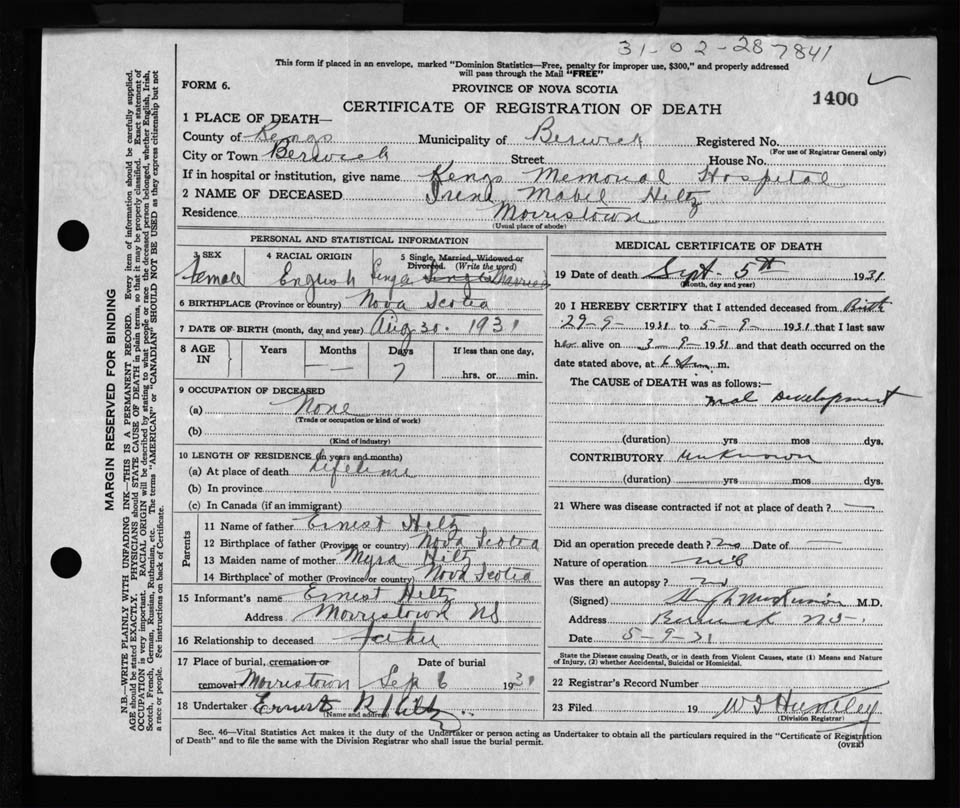 31-02-287841
This form if placed in an envelope, marked "Dominion Statistics—Free, penalty for improper use, $300," and properly addressed
will pass through the Mail "FREE"
FORM 6.
PROVINCE OF NOVA SCOTIA
1400
CERTIFICATE OF REGISTRATION OF DEATH
1 PLACE OF DEATH—
County of Kings Municipality of Berwick Registered No.
(For use of Registrar General only)
City or Town Berwick Street House No.
If in hospital or institution, give name Kings Memorial Hospital
2 NAME OF DECEASED Irene Mabel Hiltz
Residence Morristown
(Usual place of abode)
PERSONAL AND STATISTICAL INFORMATION
3 SEX 4 RACIAL ORIGIN 5 Single, Married, Widowed or
Divorced. (Write the word)
Female English Single Single Married
6 BIRTHPLACE (Province or country) Nova Scotia
7 DATE OF BIRTH (month, day and year) Aug 30. 1931
8 AGE IN Years Months Days If less than one day,
— — 7 hrs. or min.
9 OCCUPATION OF DECEASED
(a) None
(Trade or occupation or kind of work)
(b)
(Kind of industry)
10 LENGTH OF RESIDENCE (in years and months)
(a) At place of death lifetime
(b) In province
(c) In Canada (if an immigrant)
Parents
11 Name of father Ernest Hiltz
12 Birthplace of father (Province or country) Nova Scotia
13 Maiden name of mother Myra Hiltz
14 Birthplace of mother (Province or country) Nova Scotia
15 Informant's name Ernest Hiltz
Address Morristown NS
16 Relationship to deceased father
17 Place of burial, cremation or Date of burial
removal Morristown Sep 6 1931
18 Undertaker Ernest R Hiltz
(Name and address)
MEDICAL CERTIFICATE OF DEATH
19 Date of death Sept. 5th 1931
(Month, day and year)
20 I HEREBY CERTIFY that I attended deceased from Birth
29-9- 1931 to 5-9- 1931 that I last saw
h alive on 3 9- 1931 and that death occurred on the
date stated above, at 6 m.
The CAUSE of DEATH was as follows:—
Mal Development
(duration) yrs mos dys.
CONTRIBUTORY Unknown
(duration) yrs mos dys.
21 Where was disease contracted if not at place of death? —
Did an operation precede death? no Date of —
Nature of operation nil
Was there an autopsy? no
(Signed) M.D.
Address Berwick N.S.
Date 5-9-31
State the Disease causing Death, or in death from Violent Causes, state (1) Means and Nature
of Injury, (2) whether Accidental, Suicidal or Homicidal.
22 Registrar's Record Number
23 Filed 19 Huntley
(Division Registrar)
Sec. 46—Vital Statistics Act makes it the duty of the Undertaker or person acting as Undertaker to obtain all the particulars required in the "Certificate of Registration
of Death" and to file the same with the Division Registrar who shall issue the burial permit. (OVER)
MARGIN RESERVED FOR BINDING
N.B.—WRITE PLAINLY WITH UNFADING INK—THIS IS A PERMANENT RECORD. Every item of information should be carefully supplied.
AGE should be stated EXACTLY. PHYSICIANS should STATE CAUSE OF DEATH in plain terms, so that it may be properly classified. Exact statement of
OCCUPATION is very important. RACIAL ORIGIN will be described by stating to what people or race the deceased person belonged, whether English, Irish,
Scotch, French, German, Russian, Ruthenian, etc. The terms "AMERICAN" or "CANADIAN" SHOULD NOT BE USED as they express citizenship but not
a race or people. See instructions on back of Certificate.